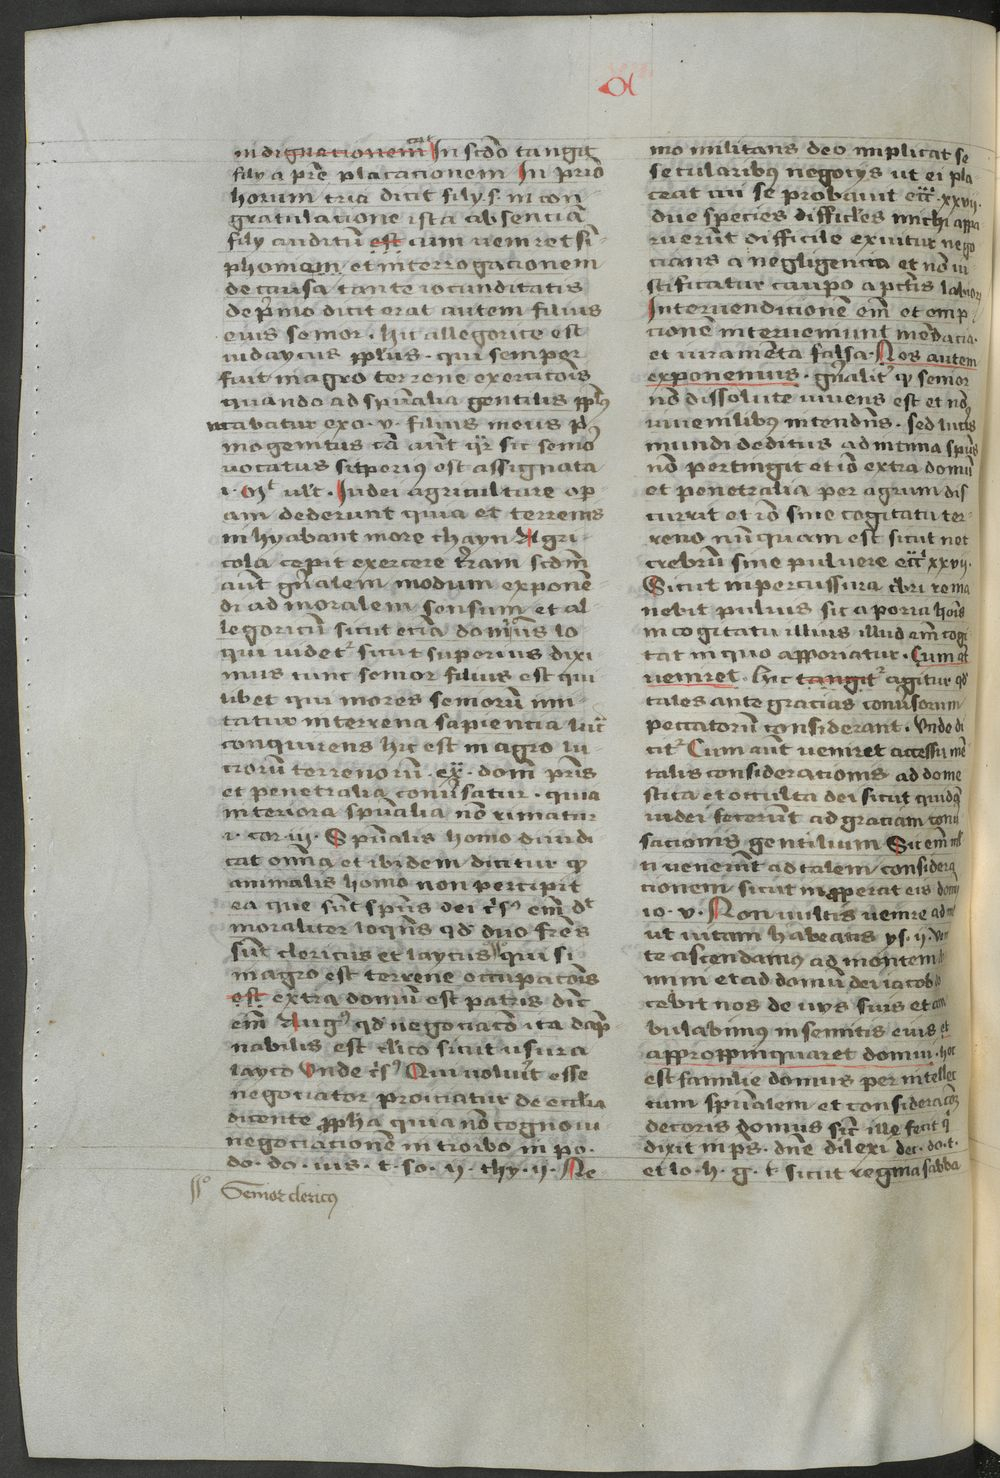 indignationem In scdo tangit
fily a pre placacionem In prio
horum tria dicit fily .s. in con
gratulacione ista absenciā
fily auditū est cum veniret sī
phoniam et interrogacionem
de causa tante iocunditatis
de primo dicit erat autem filius
eius senior . hic allegorice est
iudaycus pplus . qui semper
fuit in agro terrene exercitois
quando ad spūalia gentilis ppls
vocabatur exo . v . filius meus pri
mogenitus cā aut qr sic senior
vocatus superius est assignata
Iudei agriculture op
am dederunt quia et terrenis
inhyabant more chayn Agri
cola cepit exercere terram scdm
aut gnalem modum exponē
di ad moralem sensum et al
legoricū sicut eciā domīns lo
qui videt sicut superius dixi
mus tunc senior filius est qui
libet qui mores seniorū imi
tatur in terrena sapiencia luc
conquirens hic est in agro lu
crorū terrenorū . ex . domū pris
et penetralia conūsatur . quia
interiora spūalia nō rimatur
i . cor . ii . Spūalis homo diiudi
cat omīa et ibidem dicitur qp
animalis homo non percipit
ea que sūt spūs dei
moraliter loqns qd duo fres
sūt clericus et laycus qui si
in agro est terrene occupacois
est extra domū est patris dic
em Aug qd negociacō ita dāp
nabilis est clico sicut usura
layco Unde Qui voluit esse
negociator proiciatur de ecclia
dicente ppha quia nō cognoui
negociacionē introibo in po
do . do . ius . t . so . ii . thy . ii . Ne
Senior clericus
mo militans deo implicat se
secularibus negociis ut ei pla
ceat cui se probauit ecc . xxvii .
due species difficiles michi appa
ruerūt difficile exuitur nego
cians a negligencia et nō iu
stificatur caupo a pctis labiorum
Inter vendicionē em et emp
cionē interveniunt mēdacia .
et iuramēta falsa . Nos autem
exponemus . gnalit qp senior
nō dissolute viuens est et nō
iuuenilibus intendēs . sed lucis
mundi deditus ad intima spūs
nō pertingit et iō extra domū
et penetralia per agrum dis
currit et iō sine cogitatu ter
reno nūquam est sicut nec
crebrū sine puluere ecc xxvii .
Sicut in percussura cbri rema
nebit puluis sic aporia hois
in cogitatu illius illud em cogi
tat in quo apporiatur . Cum et
veniret . hic tangit agitur qd
tales ante gracias conūsorum
peccatorū considerant . Unde di
cit Cum aut veniret accessu mē
talis consideracionis ad dome
stica et occulta dei sicut quidā
iudei fecerūt ad graciam conū
sacionis gentilium Sic em
ti veneriīt ad talem considera
cionem sicut inpperat eis
io . v . Non vultis venire ad me
ut vitam habeatis ys . ii . Veni
te ascendamus ad montem
mini et ad domū dei iacob
cebit nos de viis suis et am
bulabimus in semitis eius et
appropinquaret domui . hoc
est familie domus per intellec
tum spūalem et consideracōm
decoris domus sic ille fecit q
dixit in ps . dne dilexi dec . do . t .
et lo . h . g . t . sicut regina sabba